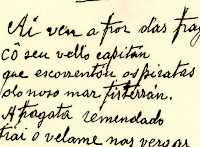 Ai ven a fror das frag
cô seu vello capitán
que escorrentou os piratas
do noso mar fisterrán.
A fragata remendado
trai o velame nas vergas